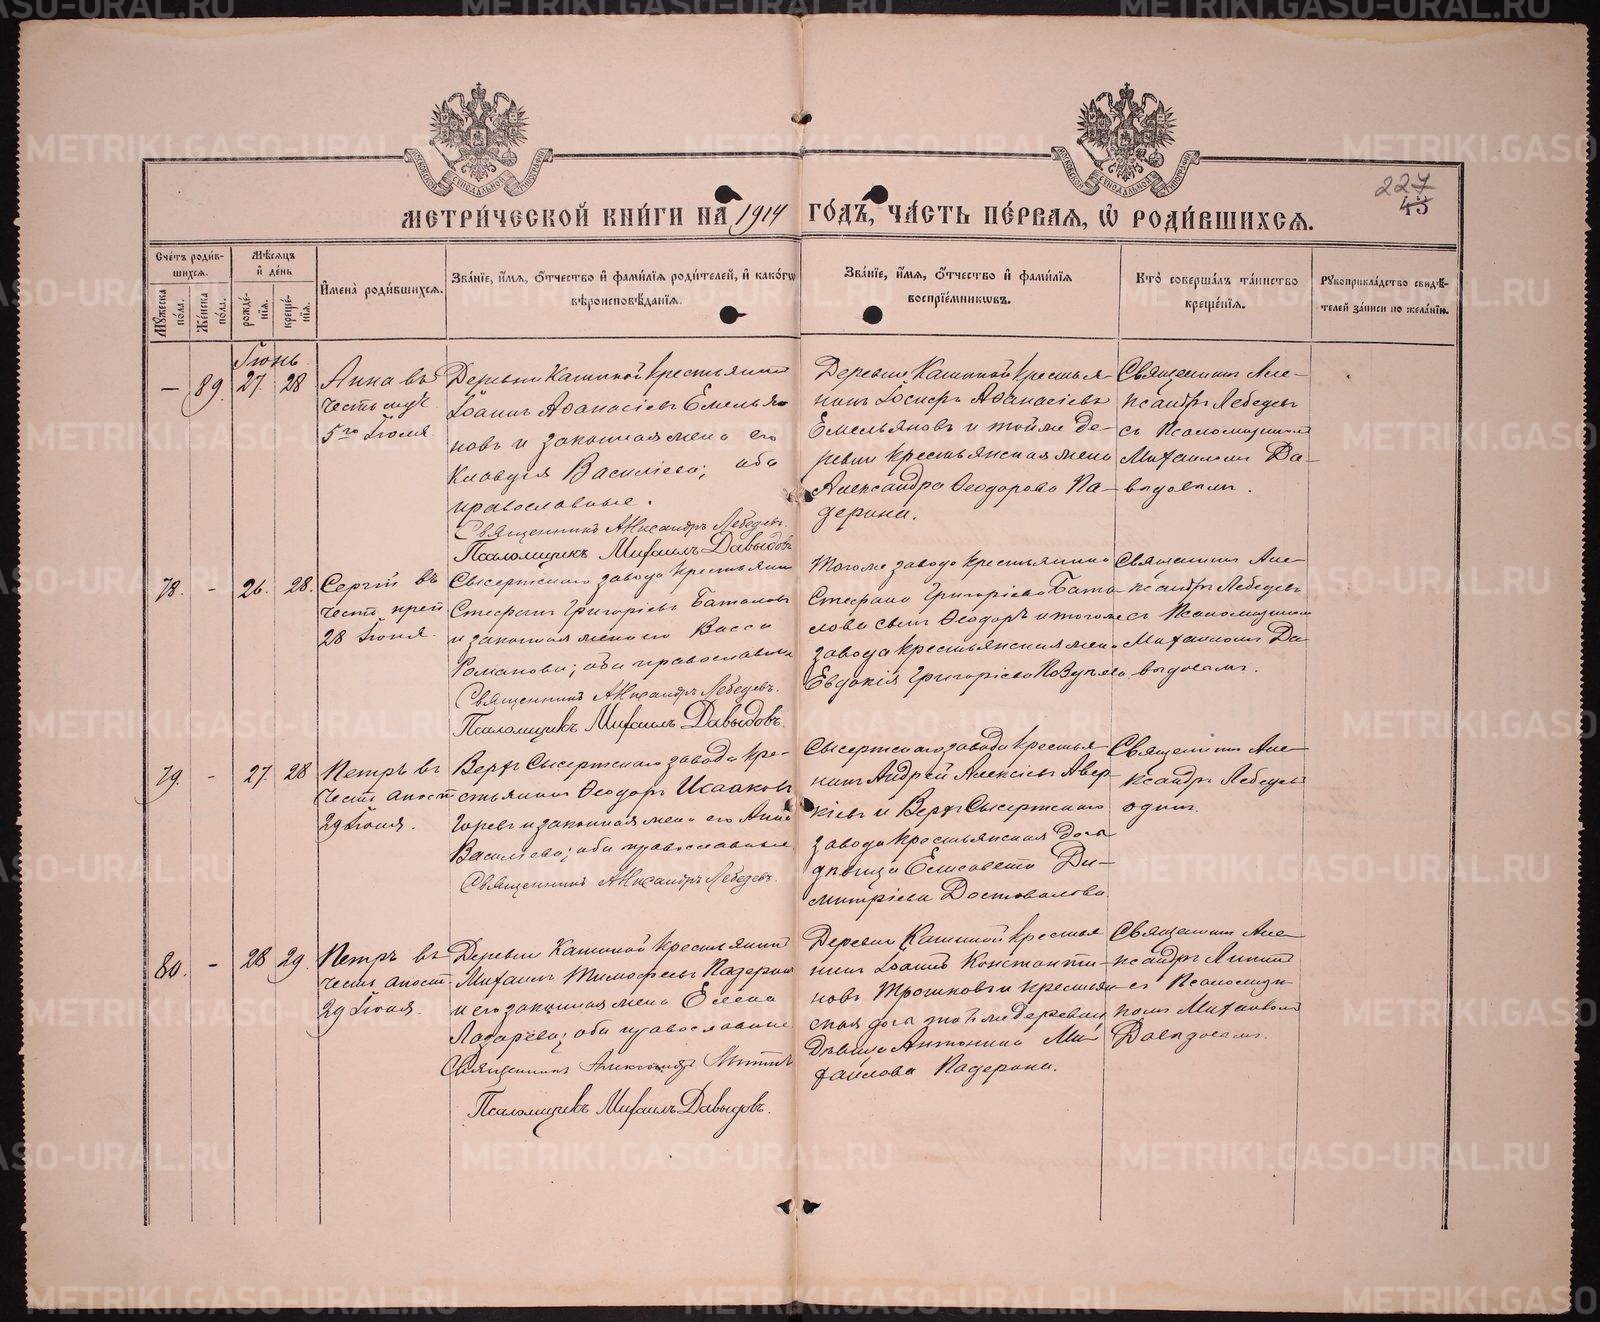 227
43
МЕТРИ́ЧЕСКОЙ КНИ́ГИ НА 1914 ГО́ДЪ, ЧА́СТЬ ПЕ́РВАЯ, Ѿ РОДИ́ВШИХСЯ.
Сче́тъ роди́в-
шихся.
Му́жеска по́ла.
Же́нска по́ла.
Мѣ́сяцъ
и де́нь
рожде́-
нія.
креще́-
нія.
Имена̀ роди́вшихся.
Зва́ніе, и́мя, о́тчество и фами́лія роди́телей, и како́гѡ
вѣроисповѣ́данія.
Зва́ніе, и́мя, о́тчество и фами́лія
воспріе́мникѡвъ.
Кто̀ соверша́лъ та́инство
креще́нія.
Рукоприкла́дство свидѣ́-
телей за́писи по жела́нію.
Іюнь
— 89. 27. 28
Анна въ
честь муч.
5го Іюля
Деревни Кашиной крестьянинъ
Іоаннъ Аѳанасіевъ Емелья-
новъ и законная жена его
Клавдія Василіева; оба
православные.
Священникъ Александръ Лебедевъ.
Псаломщикъ Михаилъ Давыдовъ
Деревни Кашиной крестья-
нинъ Іосифъ Аѳанасіевъ
Емельяновъ и тойже де-
ревни крестьянская жена
Александра Ѳеодорова Па-
дерина.
Священникъ Але-
ксандръ Лебедевъ
съ Псаломщикомъ
Михаиломъ Да-
выдовымъ.
78. - 26. 28.
Сергій въ
честь преп
28 Іюня.
Сысертскаго завода крестьянинъ
Стефанъ Григоріевъ Баталовъ
и законная жена его Васса
Романова; оба православные
Священникъ Александръ Лебедевъ.
Псаломщикъ Михаилъ Давыдовъ.
Тогоже завода крестьянина
Стефана Григоріева Бата-
лова сынъ Ѳеодоръ и тогоже
завода крестьянская жена
Евдокія Григоріева
Священникъ Але-
ксандръ Лебедевъ
съ Псаломщикомъ
Михаиломъ Да-
выдовымъ.
79. - 27. 28
Петръ въ
честь апост
29 Іюня.
Верхъ Сысертскаго завода кре-
стьянинъ Ѳеодоръ Исааковъ
и законная жена его Анна
Василіева; оба православные
Священникъ Александръ Лебедевъ.
Сысертскаго завода крестья-
нинъ Андрей Алексіевъ Авер-
кіевъ и Верхъ Сысертскаго
завода крестьянская дочь
дѣвица Елисавета Ди-
митріева Достовалова
Священникъ Але-
ксандръ Лебедевъ
одинъ.
80. - 28 29.
Петръ въ
честь апост.
29 Іюня.
Деревни Кашиной крестьянинъ
Михаилъ Тимофеевъ Падеринъ
и его законная жена Елена
Лазарева; оба православные
Священникъ Александръ
Псаломщикъ Михаилъ Давыдовъ.
Деревни Кашиной крестья
нинъ Іоаннъ Константи-
новъ Трошковъ и крестьян-
ская дочь тойже деревни
Дѣвица Антонина Ми-
хаилова Падерина.
Священникъ Але-
ксандръ
съ Псаломщи-
комъ Михаиломъ
Давыдовымъ.